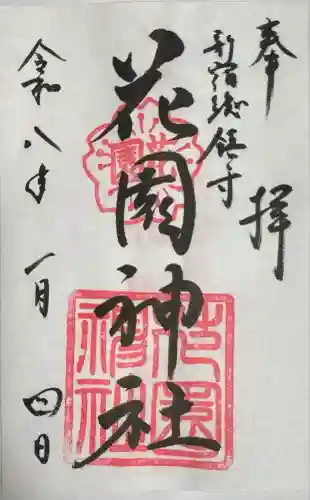 奉拝
新宿総鎮守
花園神社
花園
花園神社
令和八年 一月 四日